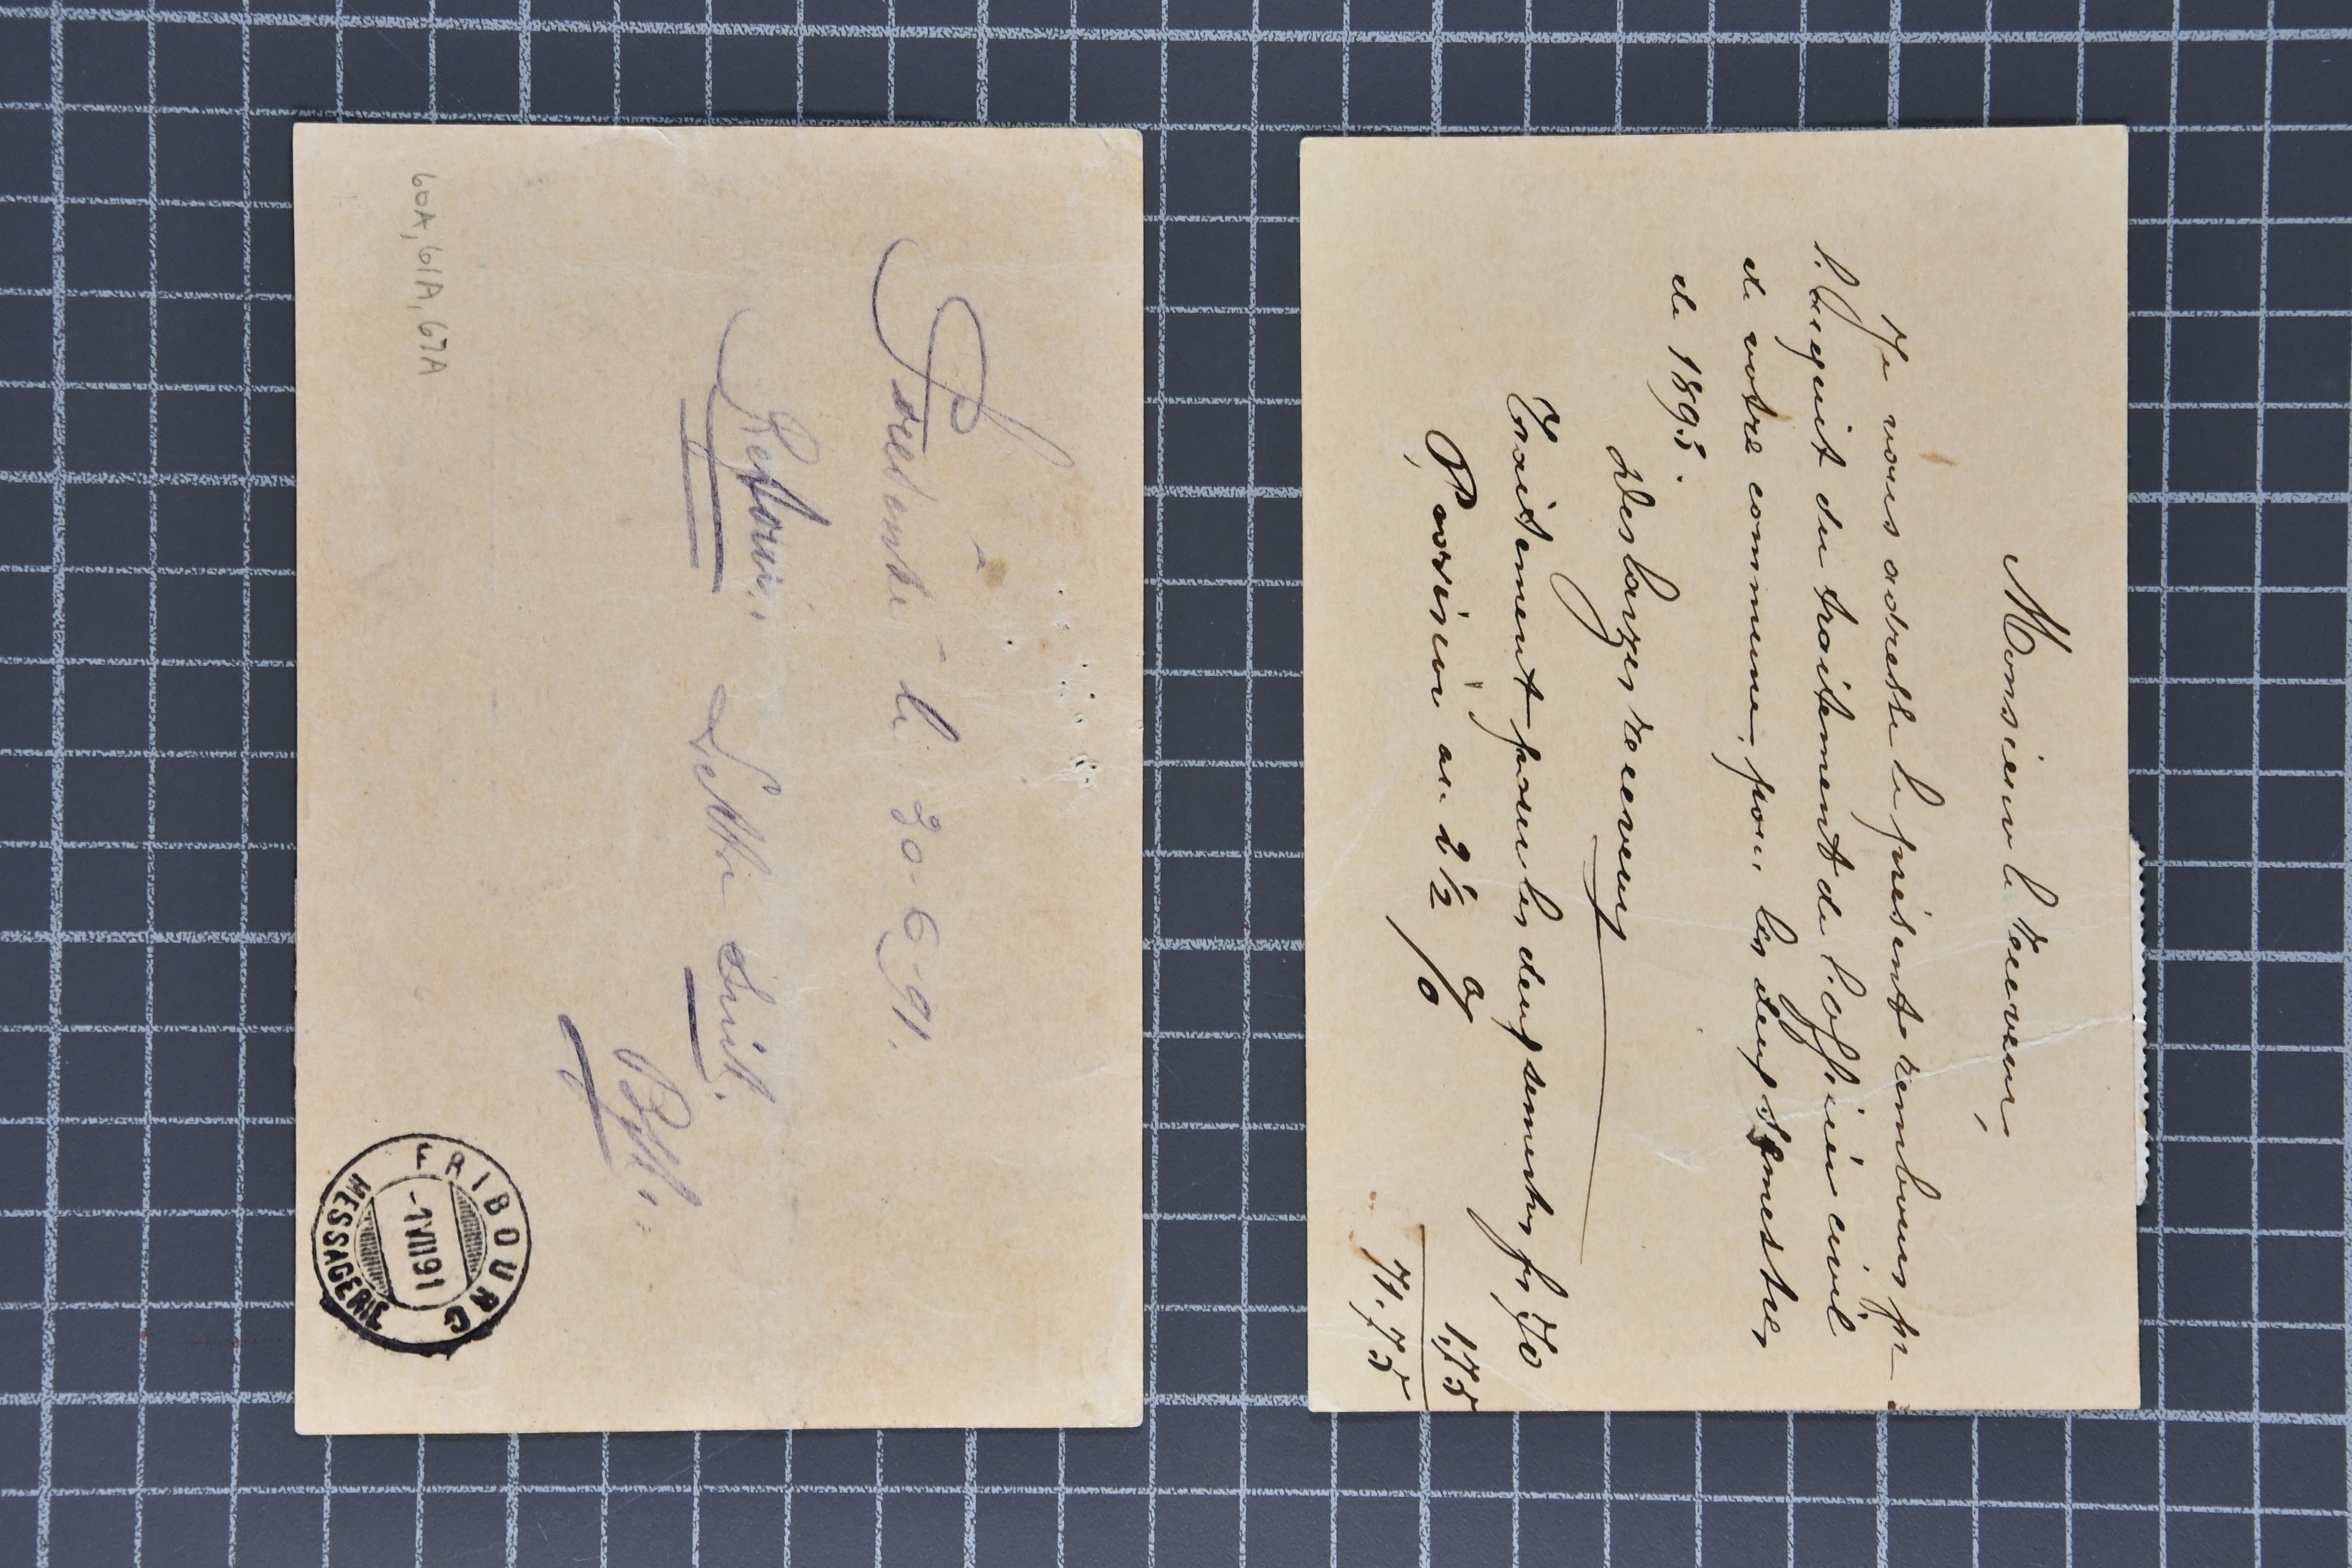 60A, 61A, 67A
Présenté le 30.6.91.
Retour. Lettre suit.
FRIBOURG
-1 VII 91
MESSAGERIE
Monsieur le receveur,
Je vous adresse le présent rembours pr
l'acquit du traitement de l'officier civil
de votre commune, pour les deux semestres
de 1893.
Deslarzes receveur
Traitement pour les deux semestres fr 70
Provision au 2 1/2 % 1,75
71.75